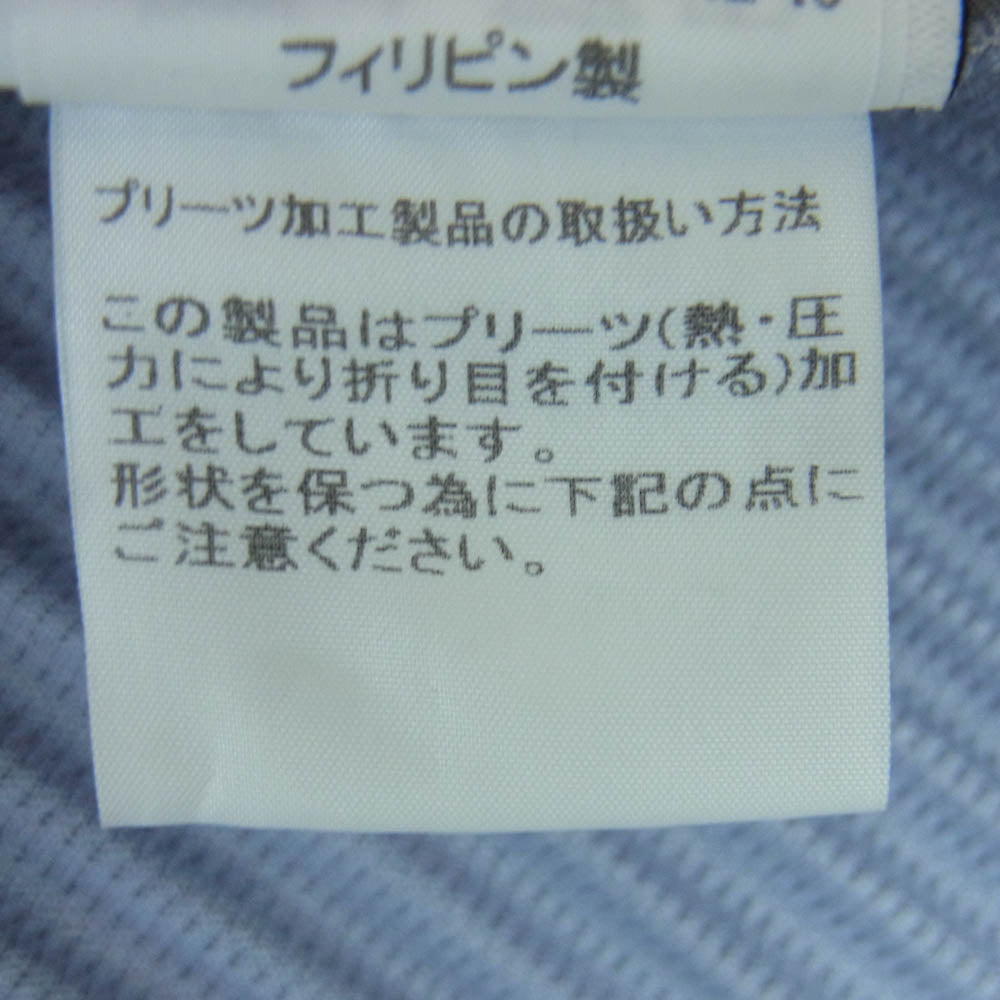 フィリピン製
プリーツ加工製品の取扱い方法
この製品はプリーツ(熱・圧
力により折り目を付ける)加
工をしています。
形状を保つ為に下記の点に
ご注意ください。